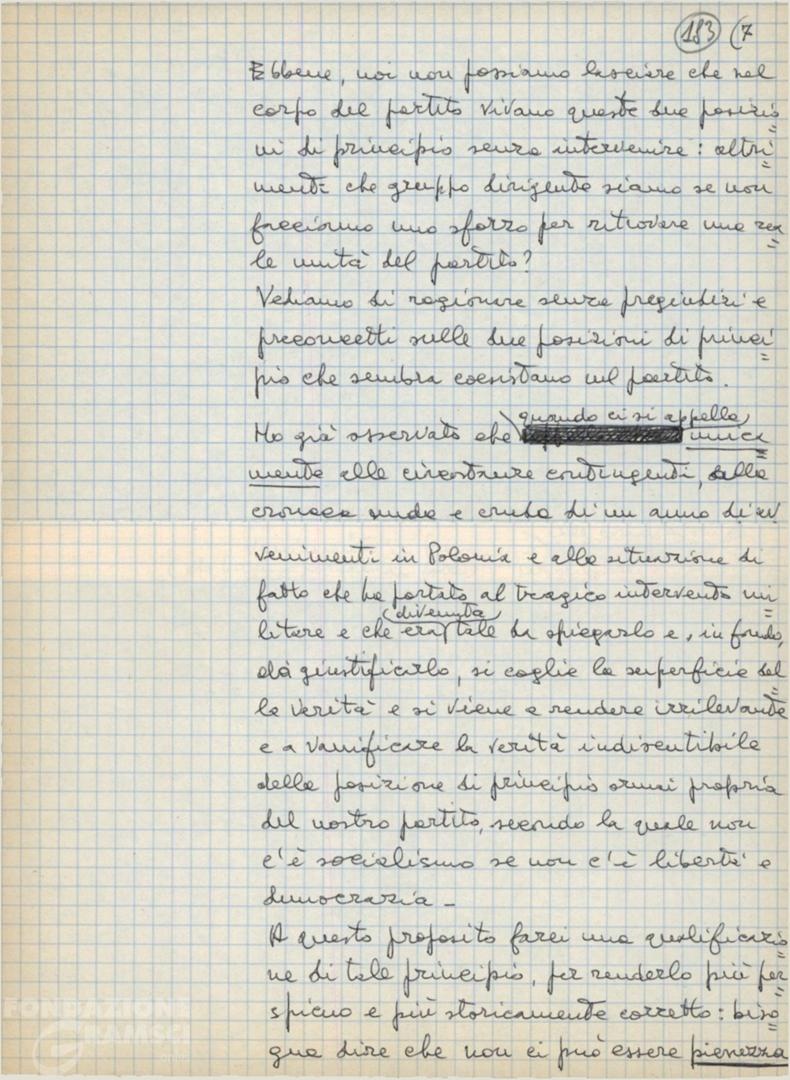 183 (7
Ebbene, noi non possiamo lasciare che nel
corpo del partito vivano queste due posizio=
ni di principio senza intervenire: altri=
menti che gruppo dirigente siamo se non
facciamo uno sforzo per ritrovare una rea=
le unità del partito?
Vediamo di ragionare senza pregiudizi e
preconcetti sulle due posizioni di princi=
pio che sembra coesistano nel partito.
quando ci si appella
Ho già osservato che unica=
mente alle circostanze contingenti, alla
cronaca nuda e cruda di un anno di av
venimenti in Polonia e alla situazione di
fatto che ha portato al tragico intervento mi=
divenuta
litare e che era tale da spiegarlo e, in fondo,
da giustificarlo, si coglie la superficie del=
la verità e si viene a rendere irrilevante
e a vanificare la verità indiscutibile
della posizione di principio ormai propria
del nostro partito, secondo la quale non
c'è socialismo se non c'è libertà e
democrazia -
A questo proposito farei una qualificazio=
ne di tale principio, per renderlo più per=
spicuo e più storicamente corretto: biso=
gna dire che non ci può essere pienezza
FONDAZIONE
GRAMSCI